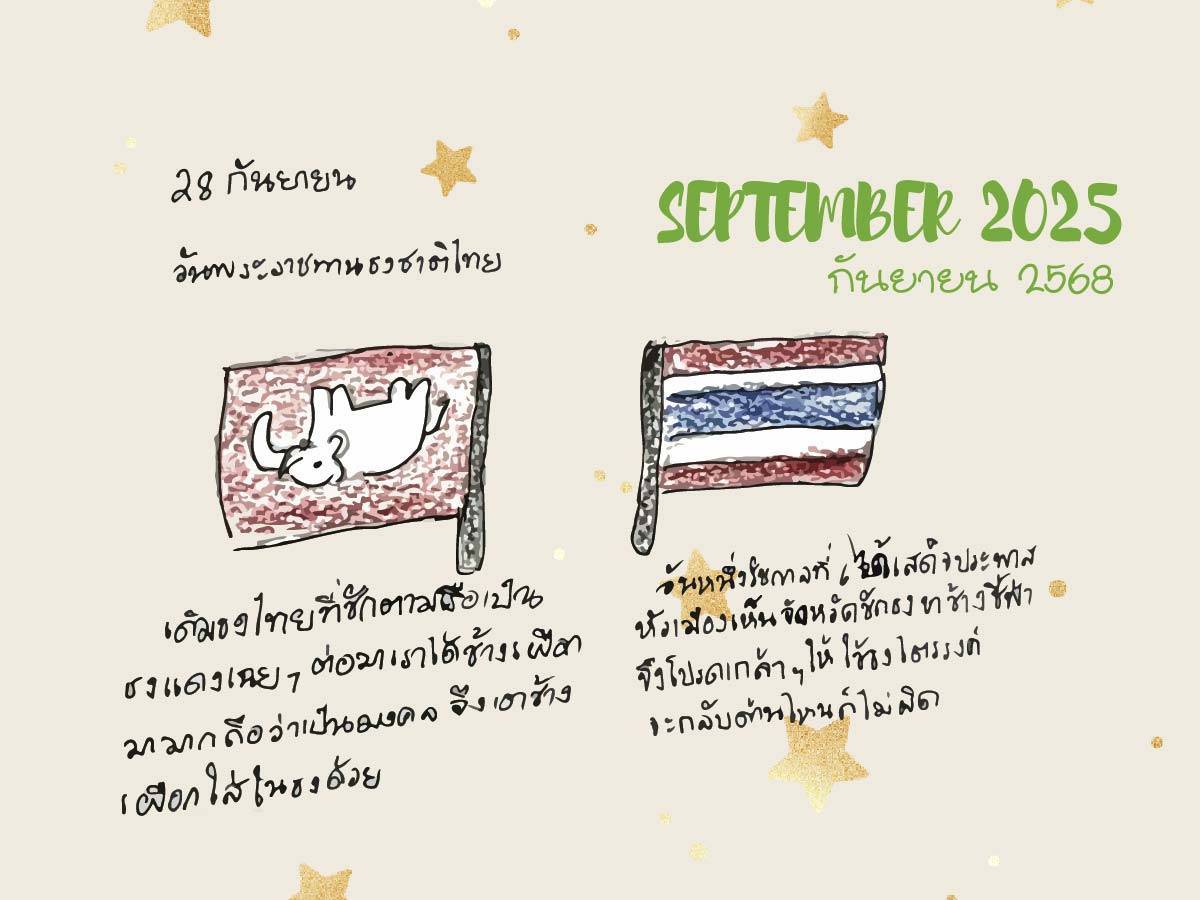 28 กันยายน
วันพระราชทานธงชาติไทย
SEPTEMBER 2025
กันยายน 2568
เดิมธงไทยที่ชักตามถือเป็น
ธงแดงเฉยๆ ต่อมาเราได้ช้างเผือก
มามากถือว่าเป็นมงคล จึงเอาช้าง
เผือกใส่ในธงด้วย
วันหนึ่งรัชกาลที่ ได้เสด็จประพาส
หัวเมืองเห็น จังหวัดชักธง ช้างชี้ฟ้า
จึงโปรดเกล้าฯ ให้ใช้ธงไตรรงค์
จะกลับด้านไหนก็ไม่ผิด